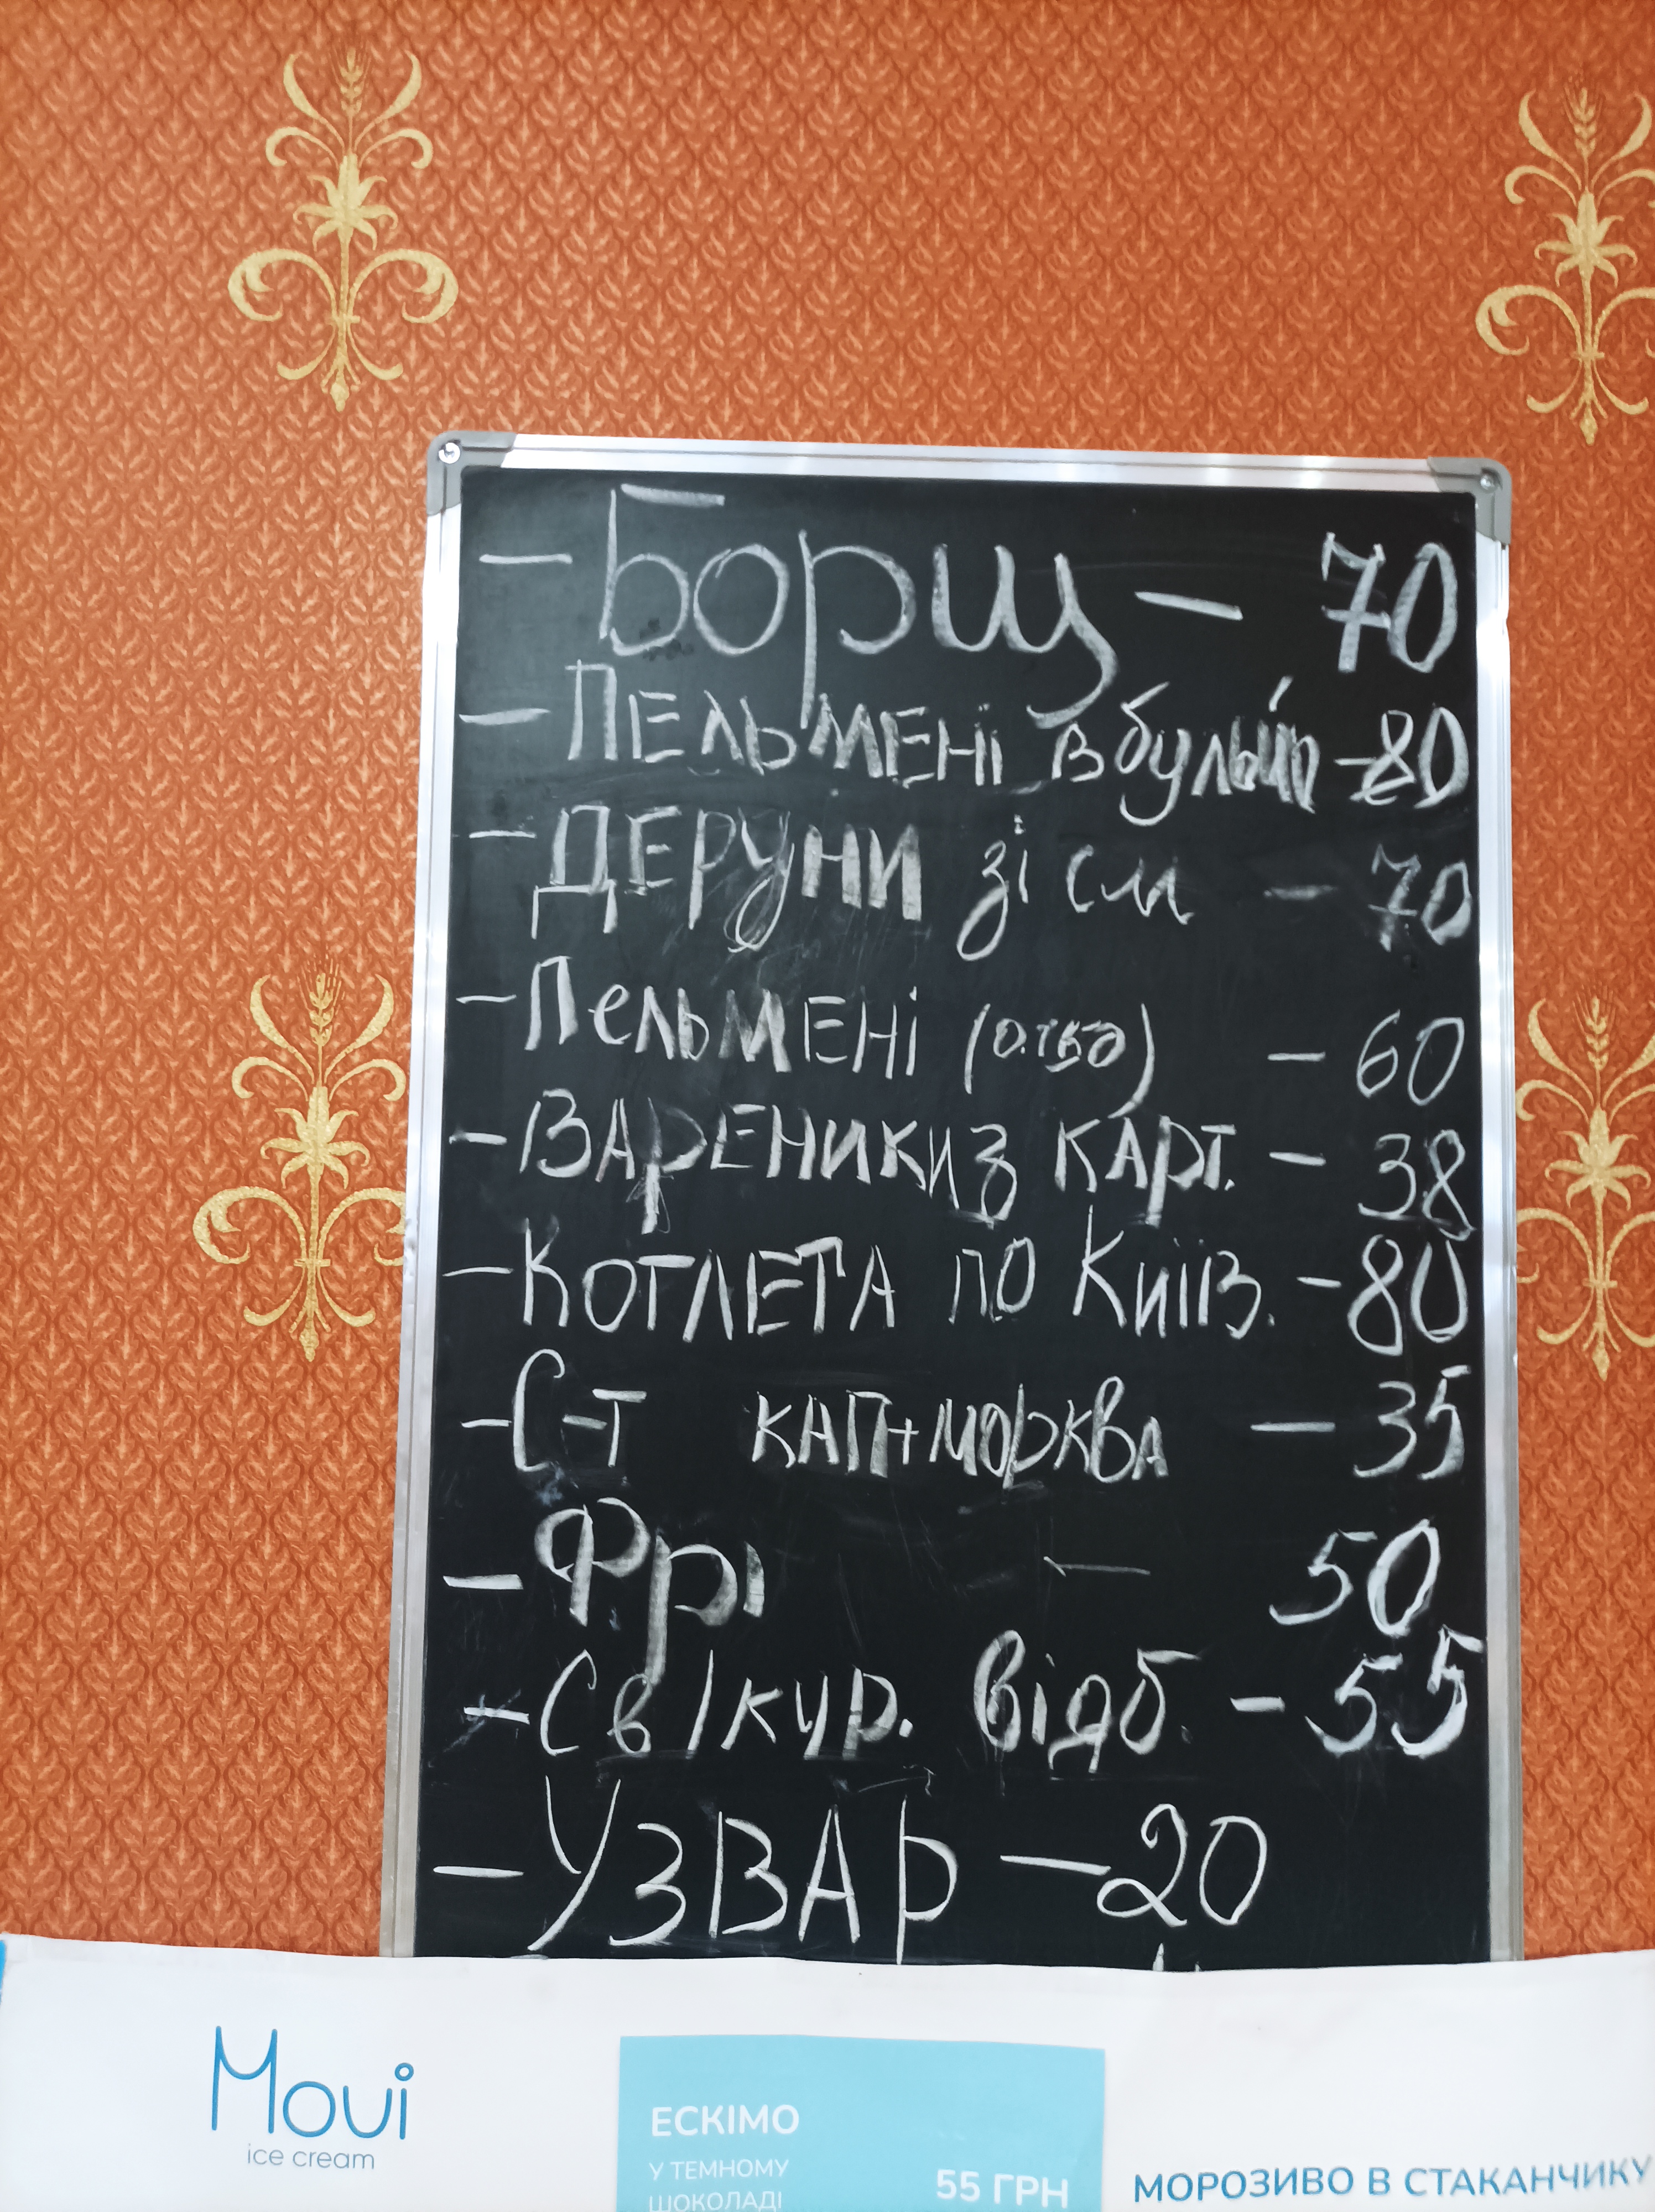 - Борщ - 70
- Пельмені в бульй - 80
- Деруни зі см - 70
- Пельмені (0.150) - 60
- Вареники з карт. - 38
- Котлета по Київ. - 80
- С-т кап+морква - 35
- Фрі - 50
- Св/кур. відб. - 55
- Узвар - 20
Moui
ice cream
ЕСКІМО
У ТЕМНОМУ
ШОКОЛАДІ
55 ГРН
МОРОЗИВО В СТАКАНЧИКУ